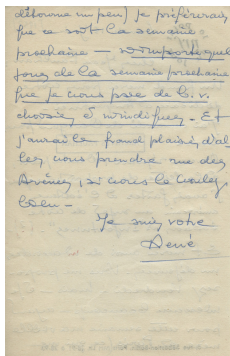 détourne un peu) je préférerais
que ce soit la semaine
prochaine — n'importe quel
jour de la semaine prochaine
que je vous prie de b. v.
choisir & m'indiquer. Et
j'aurai le grand plaisir d'al-
ler vous prendre rue des
Arènes, si vous le voulez
bien —
Je suis votre
René